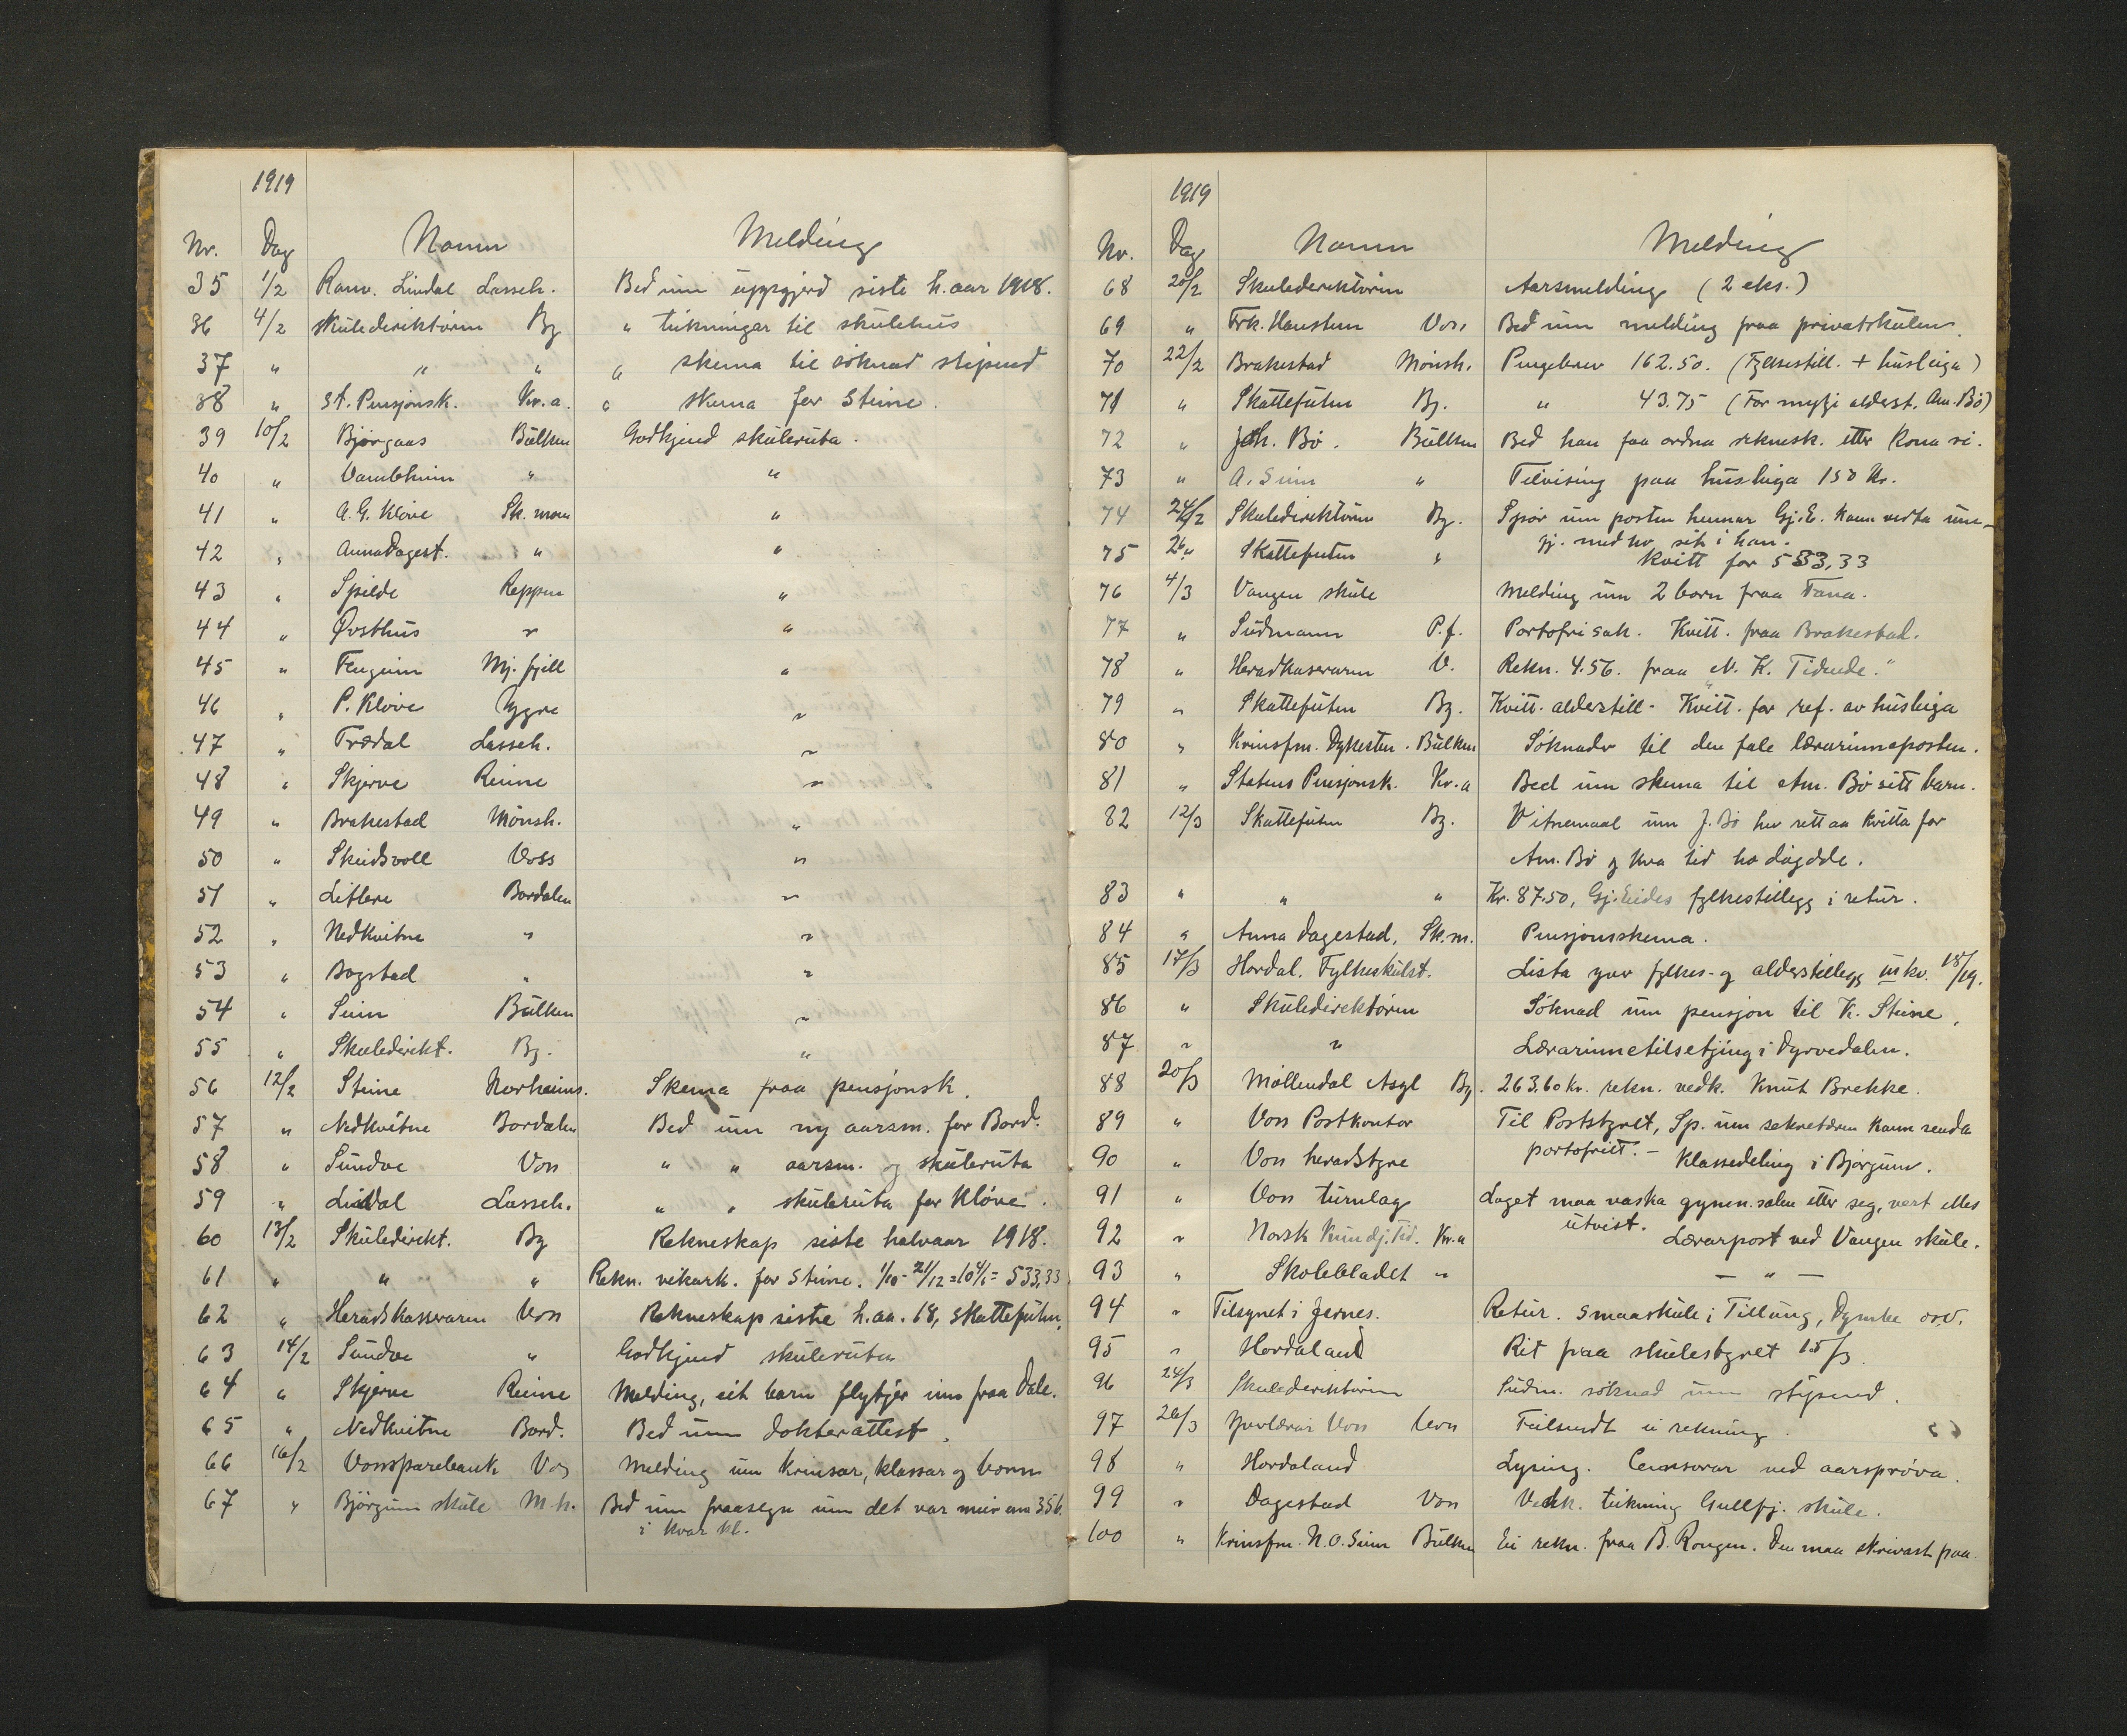 1919
Nr. Dag Namn Melding
35 1/2 Ranv. Lindal Lasseh. Bed um uppgjerd siste h.aar 1918.
36 4/2 Skuledirektørn Bg „ teikningar til skulehus
37 „ „ „ „ skema til søknad stipend
38 „ St. Pensjonsk. Kr.a. „ skema for Steine.
39 10/2 Bjørgaas Bulken Godkjend skuleruta.
40 „ Vambheim „ „
41 „ A. G. Kløve Sk. moen „
42 „ Anna Dagest. „ „
43 „ Spilde Reppen „
44 „ Øvsthus „ „
45 „ Tengeim Mj. fjell „
46 „ P. Kløve Ygre „
47 „ Trædal Lasseh. „
48 „ Skjerve Reime „
49 „ Brakestad Mønsh. „
50 „ Skutsvoll Voss „
51 „ Litlere Bordalen „
52 „ Nedkvitne „ „
53 „ Bogstad „ „
54 „ Seim Bulken „
55 „ Skuledirekt. Bg. „
56 12/2 Steine Norheims. Skema fraa pensjonsk.
57 „ Nedkvitne Bordalen Bed um ny aarsm. for Bord.
58 „ Sundve Voss „ „ aarsm. og skuleruta
59 „ Lindal Lasseh. „ „ skuleruta for Kløve.
60 13/2 Skuledirekt. Bg Rekneskap siste halvaar 1918.
61 „ „ „ Rekn. vikark. for Steine. 1/10 - 21/12 = 10 4/6 = 533,33
62 „ Heradskasseraren Voss Rekneskap siste h.aa. 18, Skattefuten,
63 14/2 Sundve „ Godkjend skuleruta
64 „ Skjerve Reime Melding, eit barn flytjer inn fraa Dale.
65 „ Nedkvitne Bord. Bed um dokterattest.
66 16/2 Voss sparebank Vos Melding um krinsar, klassar og born
67 „ Bjørgum skule M.h. Bed um fraasegn um det var meir enn 35 b.
i kvar kl.
1919
Nr. Dag Namn Melding
68 20/2 Skuledirektøren Aarsmelding (2 eks.)
69 „ Frk. Hansteen Voss Bed um melding fraa privatskulen.
70 22/2 Brakestad Mønsh. Pengebrev 162.50. (Fylkestill. + husleiga)
71 „ Skattefuten Bg. „ 43.75 (For mykje alderst. Am. Bø)
72 „ Joh. Bø. Bulken Bed han faa ordna reknesk. etter kona si.
73 „ A. Seim „ Tilvising paa husleiga 150 kr.
74 24/2 Skuledirektøren Bg. Spør um posten hennar Gj. E. kann verta um-
gj. med ho sit i han.
75 26 „ Skattefuten „ kvitt for 533,33
76 4/3 Vangen skule Melding um 2 born fraa Fana.
77 „ Sudmann P.f. Portofri sak. Kvitt. fraa Brakestad.
78 „ Heradkasseraren V. Rekn. 4.56. fraa „N. K. Tidende.“
79 „ Skattefuten Bg. Kvitt. alderstill- Kvitt. for ref. av husleiga
80 „ Krinsfm. Dykesten. Bulken Søknader til den fale lærarinneposten.
81 „ Statens Pensjonsk. Kr.a Bed um skema til Am. Bø sitt barn.
82 12/3 Skattefuten Bg. Vitnemaal um J. Bø hev rett aa kvitta for
Am. Bø og kva tid ho døydde.
83 „ „ „ Kr. 87.50, Gj. Eides fylkestillegg i retur.
84 „ Anna Dagestad, Sk.m. Pensjonsskema.
85 17/3 Hordal. Fylkeskulst. Lista yver fylkes- og alderstillegg III kv. 18/19.
86 „ Skuledirektøren Søknad um pensjon til K. Steine,
87 „ „ Lærarinnetilsetjing i Dyrvedalen.
88 20/3 Møllendal Asyl Bg. 263,60 kr. rekn. vedk. Knut Brekke.
89 „ Voss Postkontor Til Poststyret, Sp. um sekretæren kann senda
portofritt. -
90 „ Voss heradstyre Klassedeling i Bjørgum.
91 „ Voss turnlag Laget maa vaska gymn. salen etter seg, vert elles
utvist.
92 „ Norsk Kundj. Tid. Kr.a Lærarpost ved Vangen skule.
93 „ Skolebladet „ — „ —
94 „ Tilsynet i Jernes. Retur. Smaaskule i Tillung, Dymbe o.s.v.
95 „ Hordaland Rit fraa skulestyret 15/3.
96 24/3 Skuledirektøren Sudm. søknad um stipend.
97 26/3 Yverlærar Voss Voss Tilsendt ei rekning.
98 „ Hordaland Lysing. Censorar ved aarsprøva.
99 „ Dagestad Voss Vedk. teikning Gullfj. skule.
100 „ Krinsfm. N. O. Seim Bulken Ei rekn. fraa B. Rongen. Den maa skrivast paa.